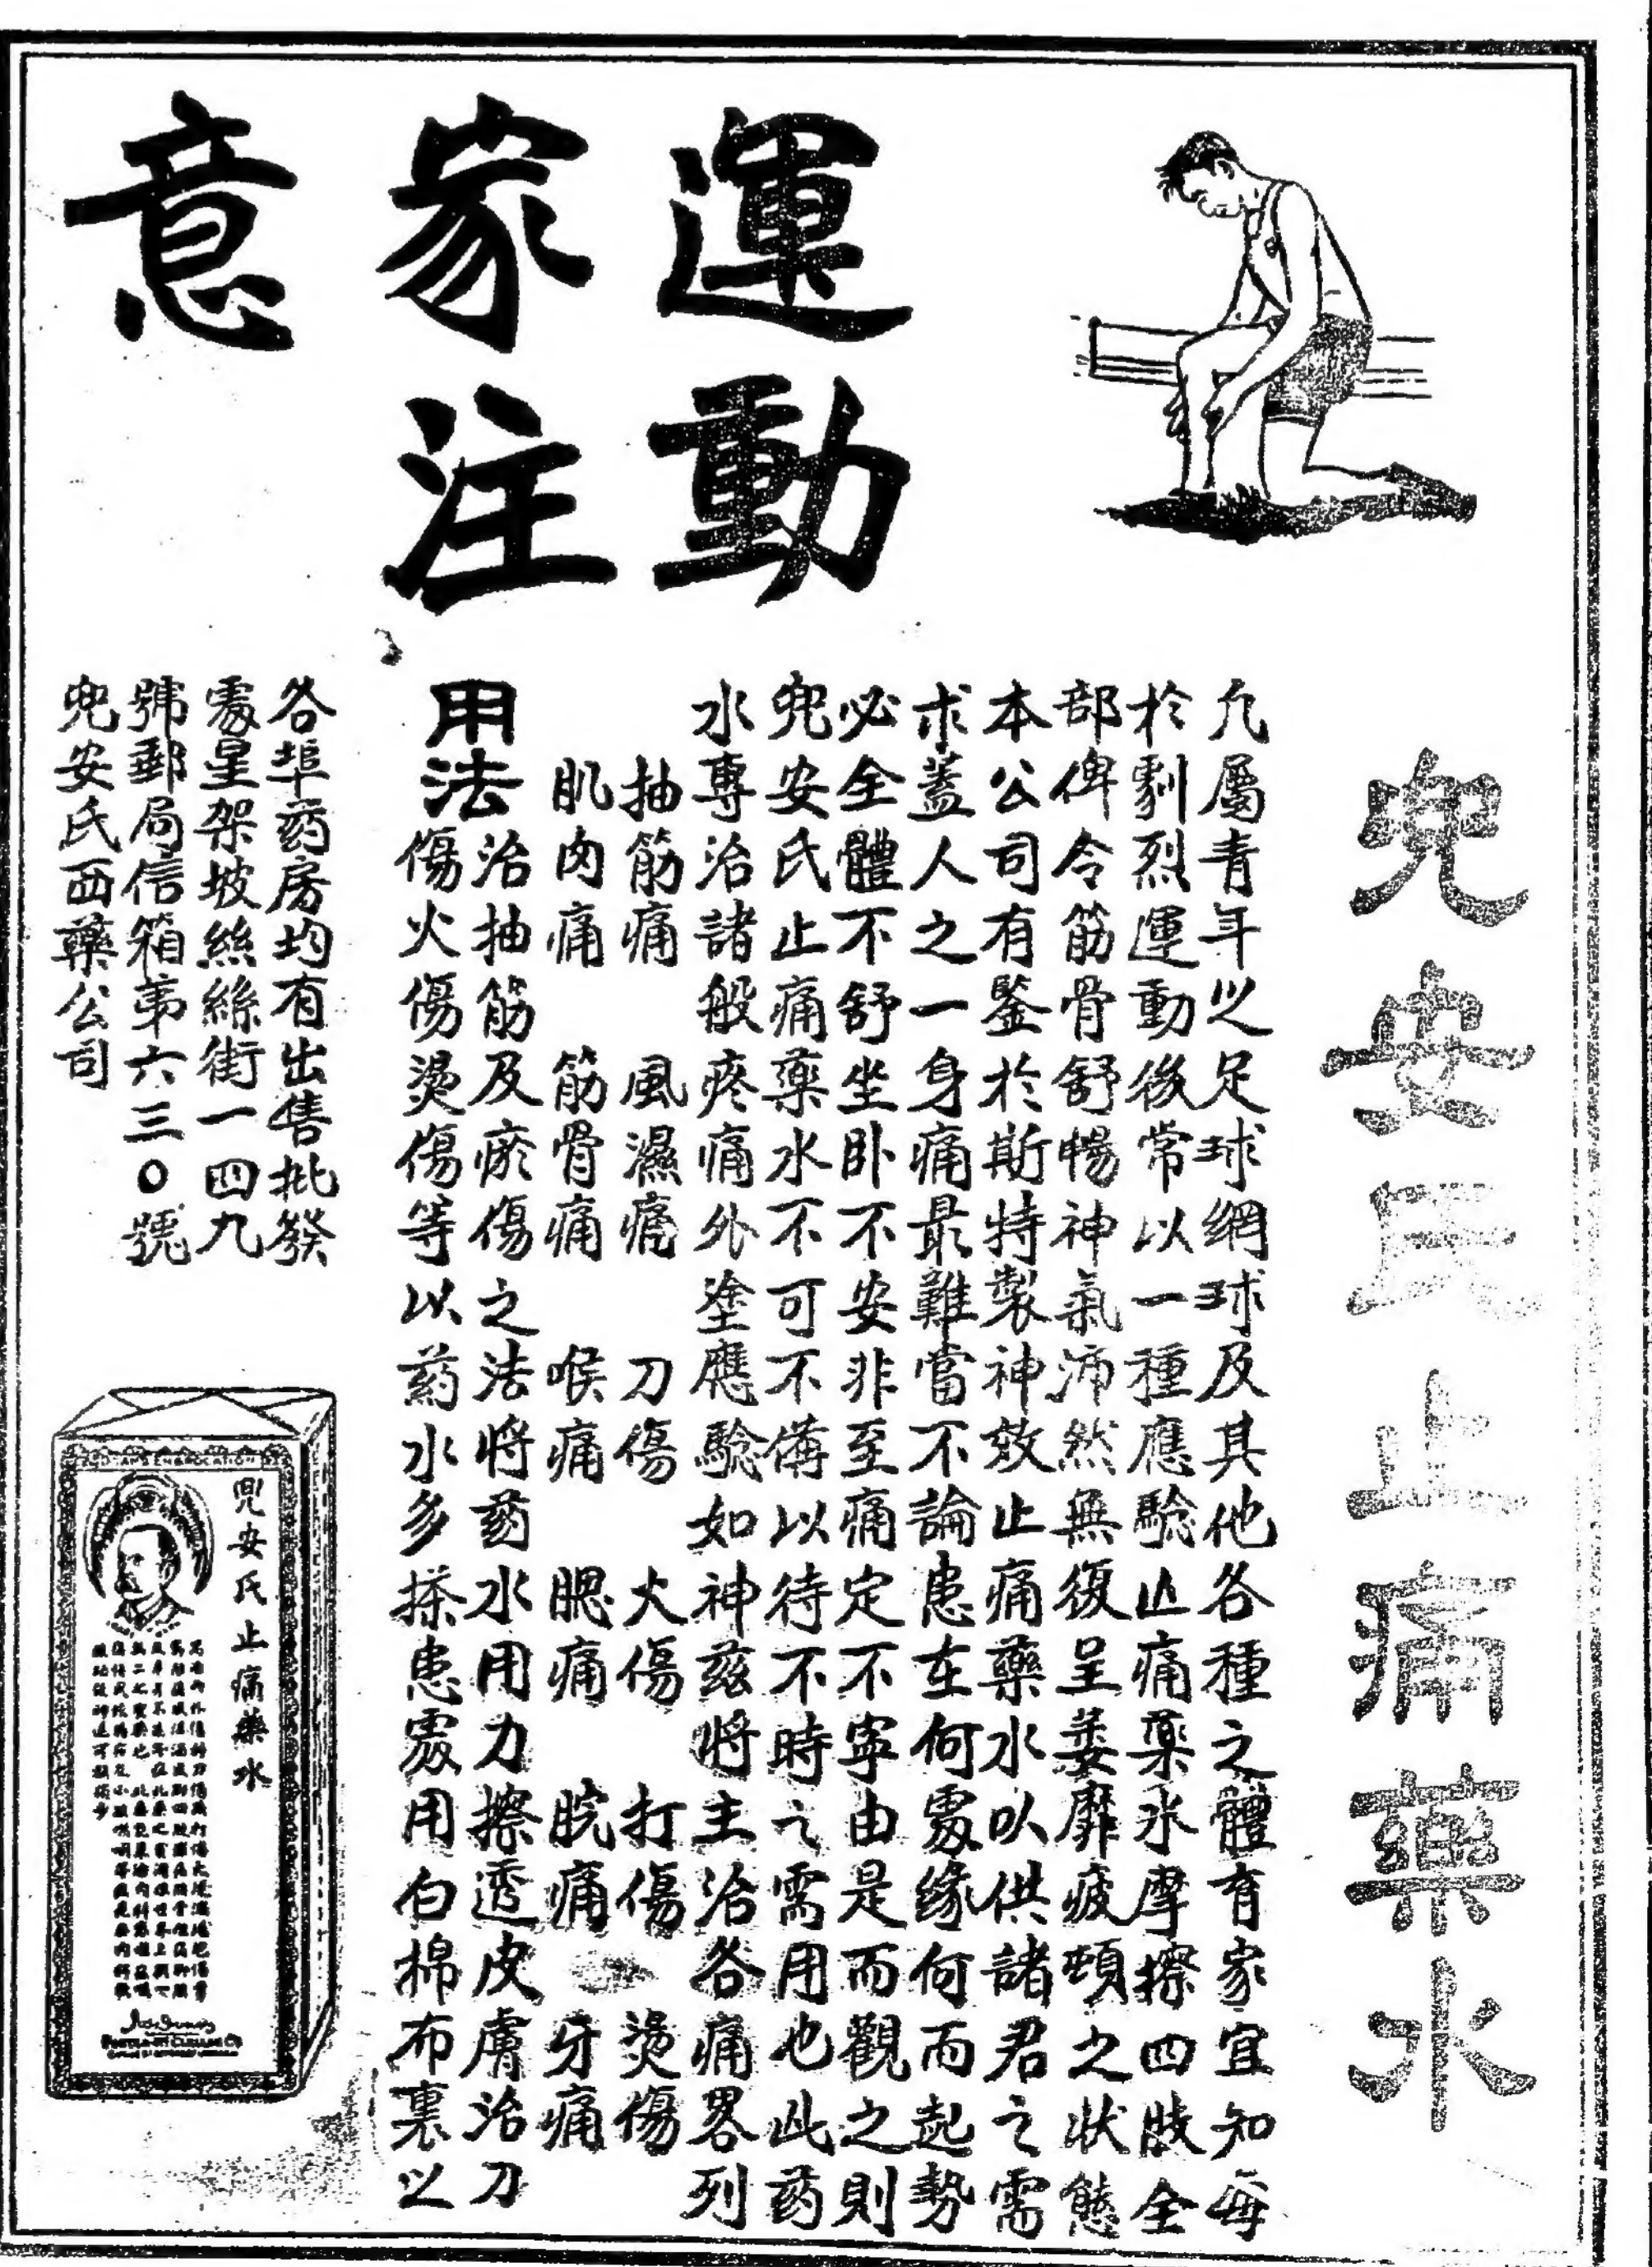 運動
家注
意
兜安氏止痛藥水
凡屬青年之足球網球及其他各種之體育家宜知每
於劇烈運動後常以一種應驗止痛藥水摩擦四肢全
部俾令筋骨舒暢神氣沛然無復呈萎靡疲頓之狀態
本公司有鑒於斯特製神效止痛藥水以供諸君之需
求蓋人之一身痛最難當不論患在何處緣何而起勢
必全體不舒坐卧不安非至痛定不寧由是而觀之則
兜安氏止痛藥水不可不備以待不時之需用也此药
水專治諸般疼痛外塗應驗如神兹將主治各痛畧列
抽筋痛 風濕痛 刀傷 火傷 打傷 燙傷
肌肉痛 筋骨痛 喉痛 腮痛 脘痛 牙痛
用法
治抽筋及瘀傷之法將药水用力擦透皮膚治刀
傷火傷燙傷等以药水多搽患處用白棉布裏以
各埠药房均有出售批發
處星架坡絲絲街一四九
號郵局信箱第六三〇號
兜安氏西藥公司
兜安氏止痛藥水